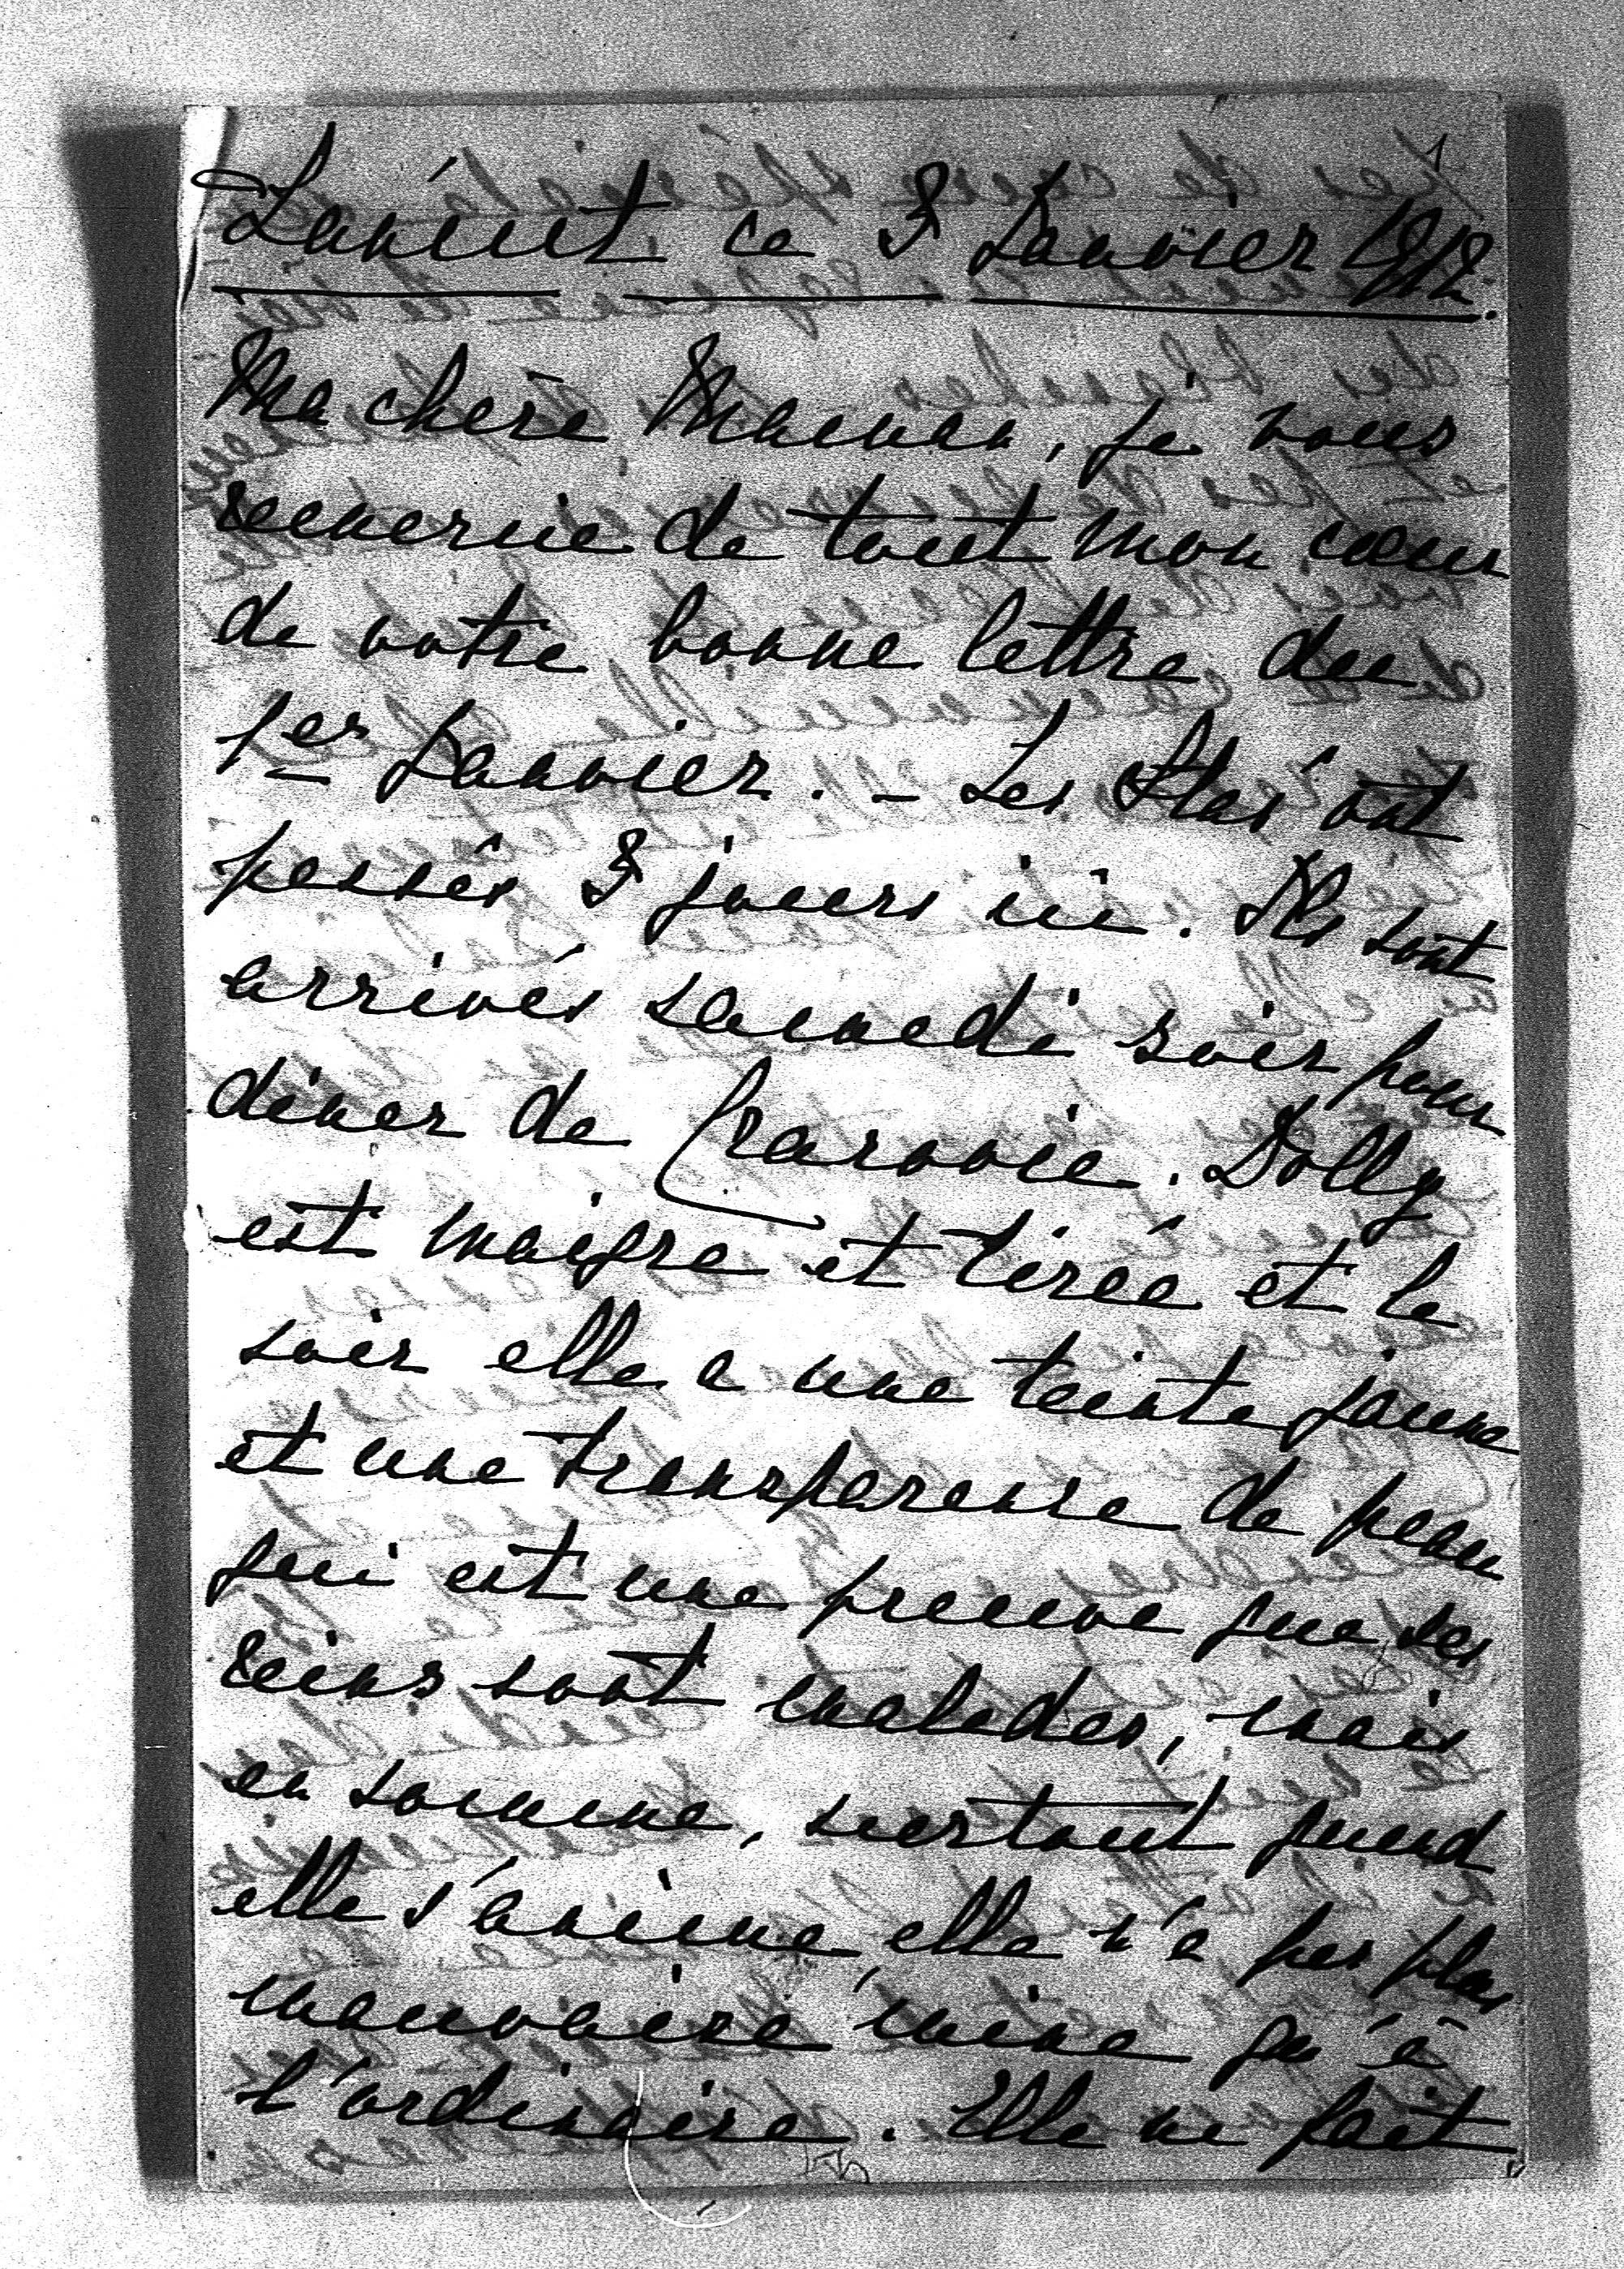 Łańcut ce 3 Janvier 1912.
Ma chère Maman, je vous
remercie de tout mon cœur
de votre bonne lettre du
1er Janvier. – Les Stas ont
passés 3 jours ici. Ils sont
arrivés samedi soir pour
diner de Cracovie. Dolly
est maigre et tirée et le
soir elle a une teinte jaune
et une transparence de peau
qui est une preuve que ses
reins sont malades, mais
en somme, surtout quand
elle s'anime, elle n'a pas plus
mauvaise mine qu'à
l'ordinaire. Elle ne fait